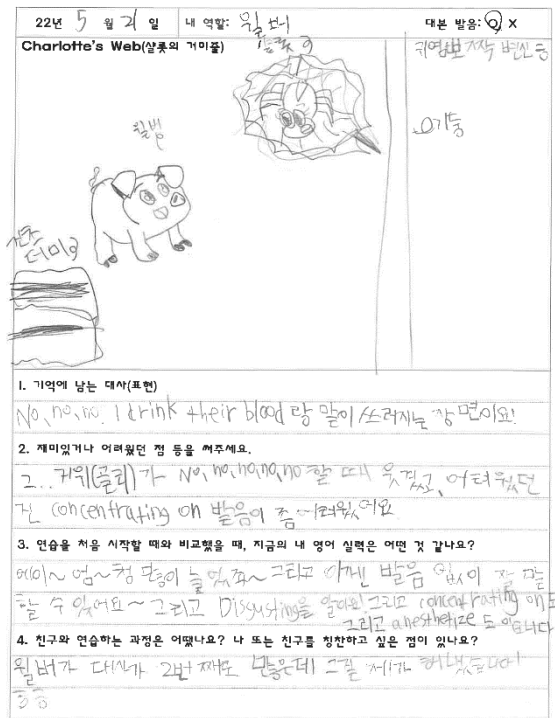 22년 5월 21일 내 역할: 윌버 대본 발음: O X
Charlotte's Web(샬롯의 거미줄)
샬롯
귀염뽀짝 변신중
기둥
윌버
더미
1. 기억에 남는 대사(표현)
No, no, no. I drink their blood 랑 말이 쓰러지는 장면이요!
2. 재미있거나 어려웠던 점 등을 써주세요.
그.. 거위(골리)가 No, no, no, no, no 할 때 웃겼고, 어려웠던
건 concentrating on 발음이 좀 어려웠어요
3. 연습을 처음 시작할 때와 비교했을 때, 지금의 내 영어 실력은 어떤 것 같나요?
에이~ 엄~청 많이 늘었죠~ 그리고 이젠 발음 없이 잘 말
할 수 있어요~ 그리고 Disgusting을 알아요! 그리고 concentrating on도
그리고 anesthetize 도 이겁니다
4. 친구와 연습하는 과정은 어땠나요? 나 또는 친구를 칭찬하고 싶은 점이 있나요?
윌버가 대사가 2번 째로 많은데 그걸 제가